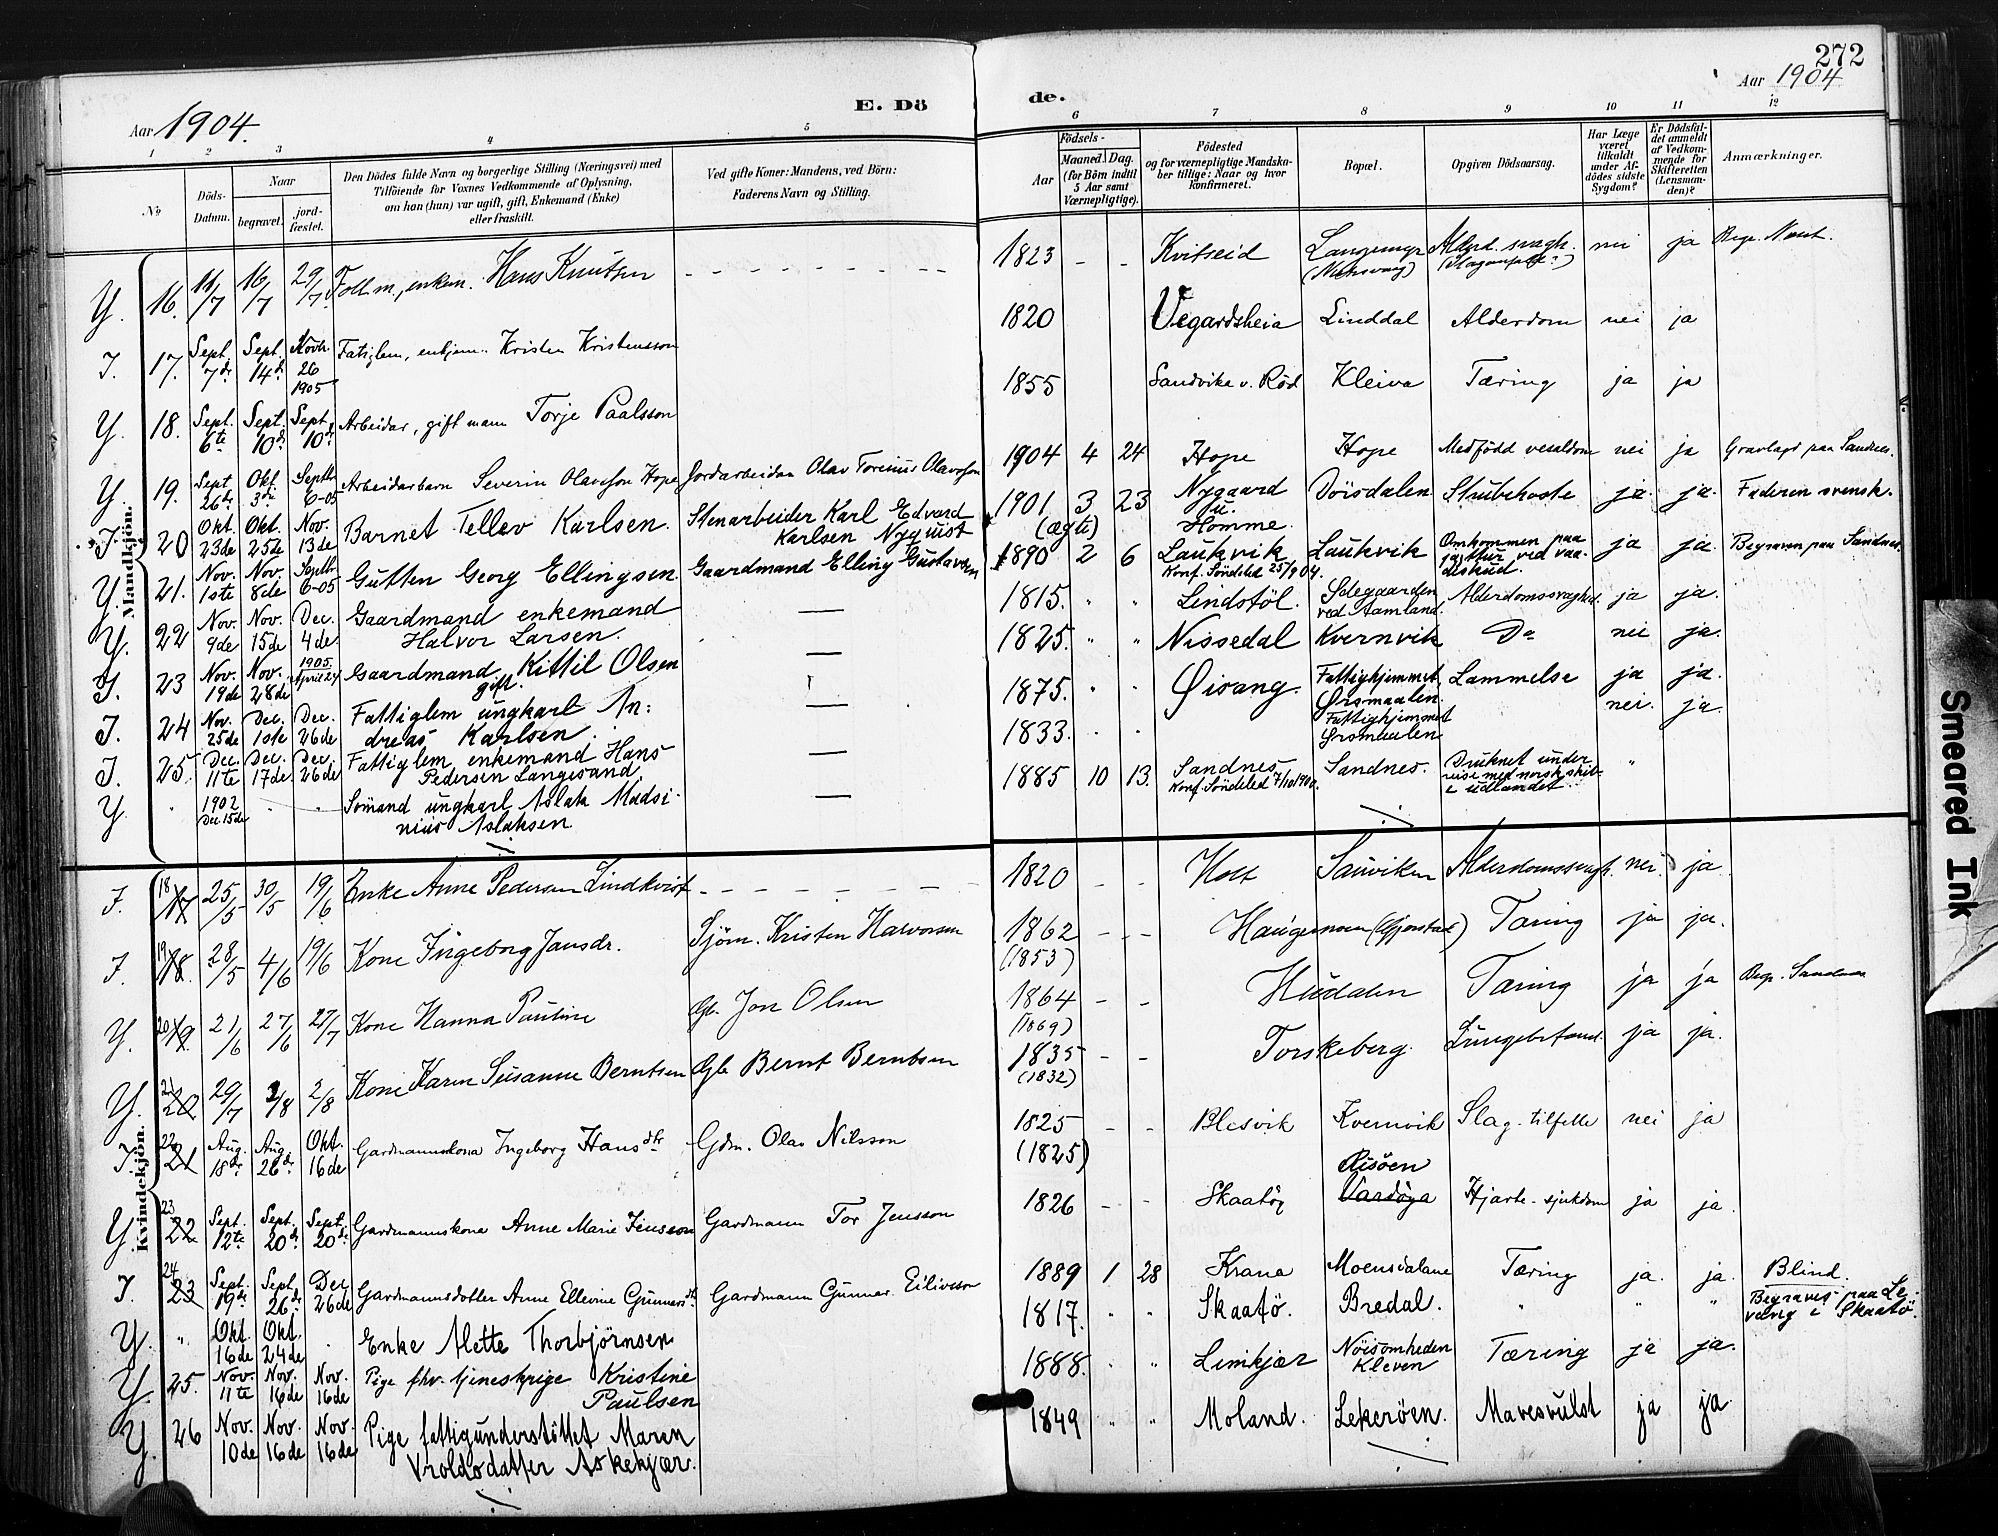 272
Aar 1904.
E. Dö
de.
Aar 1904
1 2 3 4 5
6 7 8 9 10 11 12
No
Döds-Datum.
Naar
begravet.
jord-fæstet.
Den Dödes fulde Navn og borgerlige Stilling (Næringsvei) med
Tilföiende for Voxnes Vedkommende af Oplysning,
om han (hun) var ugift, gift, Enkemand (Enke)
eller fraskilt.
Ved gifte Koner: Mandens, ved Börn:
Faderens Navn og Stilling.
Födsels-
Aar
Maaned. Dag.
(for Börn indtil
5 Aar samt
Værnepligtige).
Födested
og for værnepligtige Mandska-
ber tillige: Naar og hvor
konfirmeret.
Bopæl.
Opgiven Dödsaarsag.
Har Læge
været
tilkaldt
under Af-
dödes sidste
Sygdom?
Er Dödsfal-
det anmeldt
af Vedkom-
mende for
Skifteretten
(Lensman-
den)?
Anmærkninger.
Mandkjön.
Y. 16. 11/7 16/7 29/7 Hans Knutsen 1823 Kvitseid nei ja
I. 17. Sept. 7de Sept. 14de Novbr. 26 1905 Fatiglem, enkjem. Kristen Kristensson 1820 Vegardsheia Linddal Alderdom nei ja
Y. 18. Sept. 6te Sept. 10de Sept. 10de Arbeidar, gift mann Torje Paalsson 1855 Sandvika v. Röd Kleiva Tæring ja ja
Y. 19. Sept 26de Okt. 3die Septbr. 6-05 Arbeidarbarn Severin Olavsson Hope Jordarbeidar Olav Torinius Olavsson 1904 4 24 Hope Hope Medfödd nei ja Gravlagd paa Sandnes.
I. 20 Okt. 23de Okt. 25de Nov. 13de Barnet Tellev Karlsen. Stenarbeider Karl Edvard Karlsen Nyquist 1901 (ægte) 3 23 Nygaard u. Homme. Döisdalen Strubehoste ja. ja. Faderen svensk.
Y 21. Nov. 1ste Nov. 8de Septbr. 6-05 Gutten Georg Ellingsen. Gaardmand Elling Gustavsen 1890 2 6 Laukvik Konf. Söndeled 25/9 04. Laukvik Omkommen paa jagttur ved vaadeskud. ja ja. Begraven paa Sandnes.
Y. 22 Nov. 9de Nov. 15de Dec. 4de Gaardmand enkemand Halvor Larsen. 1815. " " Lindstöl. Solegaarden ved Aamland. Alderdomssvaghed. ja ja.
I. 23 Nov. 19de Nov. 28de 1905. April 24 Gaardmand Kittil Olsen gift. 1825. " " Nissedal Kvernvik Do nei ja.
I. 24 Nov. 25de Dec. 1ste Dec. 26de Fattiglem ungkarl An: dreas Karlsen. 1875. " " Øisang. Fattighjemmet Ørsmaalen Lammelse ja ja.
I. 25. Dec. 11te Dec. 17de Dec. 26de Fattiglem enkemand Hans Pedersen Langesand. 1833. " " Fattighjemmet Ørsmaalen nei. ja.
Y " 1902 Dec. 15de " " Sömand ungkarl Aslak Madsi- nius Aslaksen. 1885 10 13. Sandnes Konf. Söndeled 7/10 1900. Sandnes. Druknet under reise med norsk skib i udlandet. "
Kvindekjön.
I. 18 17 25/5 30/5 19/6 Enke Anne Pedersen Lindkvist 1820 Holt Sauviken nei. ja.
I. 19 18. 28/5 4/6 19/6 Kone Ingeborg Jansdr. Sjöm. Kristen Halvorsen 1862 (1853) (Gjerstad) Tæring ja ja.
Y. 20 19. 21/6 27/6 27/7 Kone Hanna Pauline Gb. Jon Olsen 1864 (1869) Huddalen Tæring ja ja Begr. Sandnes
Y. 21 20 29/7 2/8 2/8 Kone Karen Susanne Berntsen Gb Bernt Berntsen 1835 (1832) Torskeberg. ja ja.
I. 22 21 Aug. 18de Aug. 26de Okt. 16de Gardmannskona Ingeborg Hansdtr Gdm. Olav Nilsson 1825 (1825) Blesvik Kvernvik Slag-tilfelle nei ja
Y 23 22 Sept. 12te Sept. 20de Sept. 20de Gardmannskona Anne Marie Jensson Gardmann Tor Jensson 1826 Skaatöy Risöen Vardöya Hjarte-sjukdom ja ja.
I. 24 23 Sept. 19de Sept. 26de Dec 26de Gardmannsdotter Anne Ellevine Gunnarsdtr Gardmann Gunnar Eilivsson 1889 1 28 Krana Moensdalane Tæring ja. ja. Blind.
Y. " Okt. 16de Okt. 24de " Enke Alette Thorbjörnsen 1817. " Skaatö. Bredal. " " " Begraves paa Le- vang i Skaatö.
Y. 25. Nov. 11te Nov. 16de Nov. 16de Pige fhv. tjenestepige Kristine Paulsen 1888. " " Limkjær Nöisomheden Kleven Tæring ja ja.
Y. 26 Nov. 10de Nov. 16de Nov. 16de Pige fattigunderstöttet Maren Vroldsdatter Askekjær. 1849 " " Moland. Lekeröen. Mavesvulst ja ja
Smeared Ink